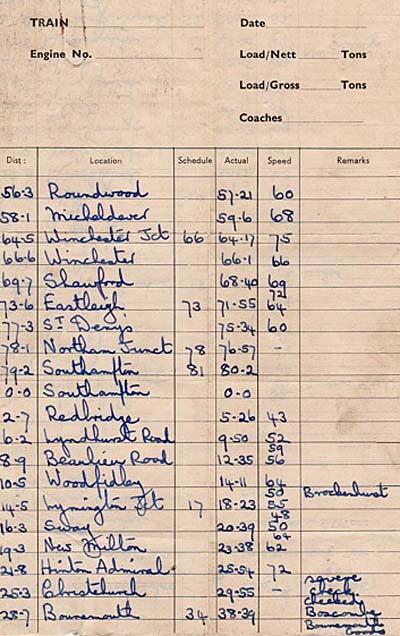 TRAIN Date
Engine No. Load/Nett Tons
Load/Gross Tons
Coaches
Dist: Location Schedule Actual Speed Remarks
56-3 Roundwood 57-21 60
58-1 Micheldever 59-6 68
64-5 Winchester Jct 66 64-17 75
66-6 Winchester 66-1 66
69-7 Shawford 68-40 69
72
73-6 Eastleigh 73 71-55 64
77-3 St Denys 75-34 60
78-1 Northam Junct 78 76-57 -
79-2 Southampton 81 80-2
0-0 Southampton 0-0
2-7 Redbridge 5-26 43
6-2 Lyndhurst Road 9-50 52
59
8-9 Beaulieu Road 12-35 56
10-5 Woodfidley 14-11 64
50 Brockenhurst
14-5 Lymington Jct 17 18-23 55
48
16-3 Sway 20-39 50
64
19-3 New Milton 23-38 62
21-8 Hinton Admiral 25-54 72
25-3 Christchurch 29-55 - check
checked
28-7 Bournemouth 34 38-39 Boscombe
Bournemouth